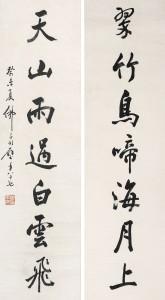 翠竹鳥啼海月上
天山雨過白雲飛